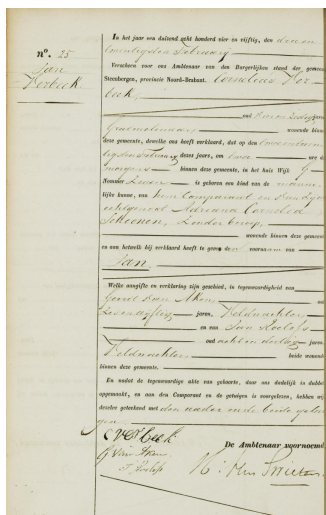 nº. 25
Jan
Verbeek
In het jaar een duizend acht honderd vier en vijftig, den drie en
twintigsten Februarij
Verscheen voor ons Ambtenaar van den Burgerlijken stand der gemeente
Steenbergen, provincie Noord-Brabant. Cornelis Ver
beek,
oud jaren
wonende binnen
deze gemeente, dewelke ons heeft verklaard, dat op den
tigsten Februarij dezes jaars, om twee ure des
morgens binnen deze gemeente, in het huis Wijk G
Nummer Zeven is geboren een kind van de manne-
lijke kunne, van hem Comparant en van zijne
echtgenoot Adriana Cornelia
Schoonen, zonder beroep,
wonende binnen deze gemeente
en aan hetwelk hij verklaard heeft te geven den voornaam van
Jan
Welke aangifte en verklaring zijn geschied, in tegenwoordigheid van
Gerrit van Aken, oud
jaren, Veldwachter
en van Jan Roelofs
oud acht en dertig jaren,
Veldwachter beide wonende
binnen deze gemeente.
En nadat de tegenwoordige akte van geboorte, door ons dadelijk in dubbel
opgemaakt, en aan den Comparant en de getuigen is voorgelezen, hebben wij
dezelve geteekend met den vader en de beide getui
gen.
C Verbeek
G Van Aken
J Roelofs
De Ambtenaar voornoemd